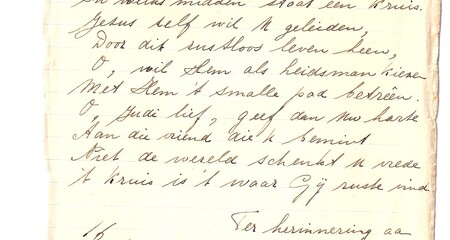 midden staat een kruis.
Jesus self wil U geleiden,
Door dit rustloos leven heen,
O, wil Hem als leidsman kiezen
Met Hem 't smalle pad betreên.
O, Judi lief, geef dan Uw harte
Aan die vriend die U bemint
Niet de wereld schenkt U vrede
't Kruis is 't waar Gij ruste vind
Ter herinnering aa